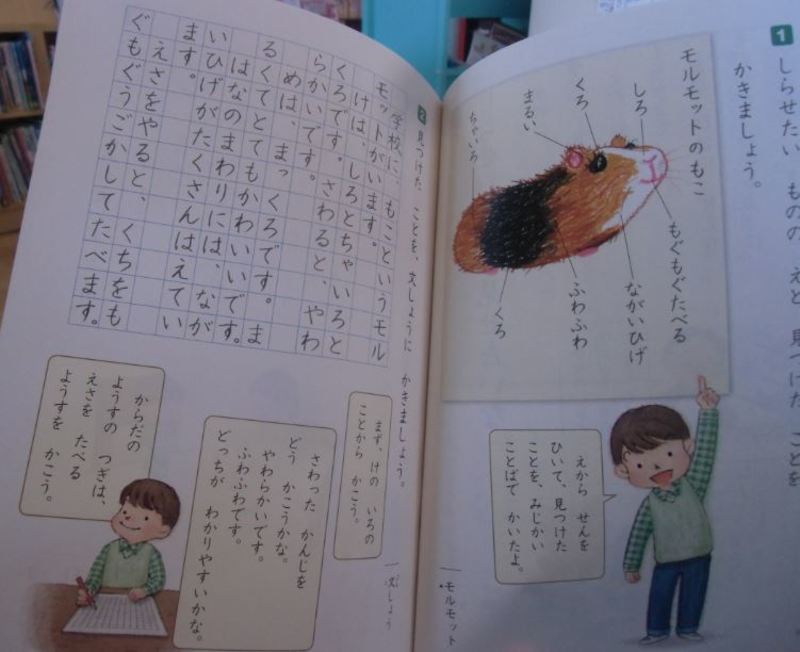 1 しらせたい ものの えと 見つけた ことを
かきましょう。
モルモットのもこ
しろ
くろ
まるい
ちゃいろ
もぐもぐたべる
ながいひげ
ふわふわ
くろ
えから せんを
ひいて、見つけた
ことを、みじかい
ことばで かいたよ。
モルモット
2 見つけた ことを、文しょうに かきましょう。
学校に、もこというモル
モットがいます。
けは、しろとちゃいろと
くろです。さわると、やわ
らかいです。
めは、まっくろです。ま
るくてとてもかわいいです。
はなのまわりには、なが
いひげがたくさんはえてい
ます。
えさをやると、くちをも
ぐもぐうごかしてたべます。
まず、けの いろの
ことから かこう。
さわった かんじを
どう かこうかな。
やわらかいです。
ふわふわです。
どっちが わかりやすいかな。
からだの
ようすの つぎは、
えさを たべる
ようすを かこう。
文しょう